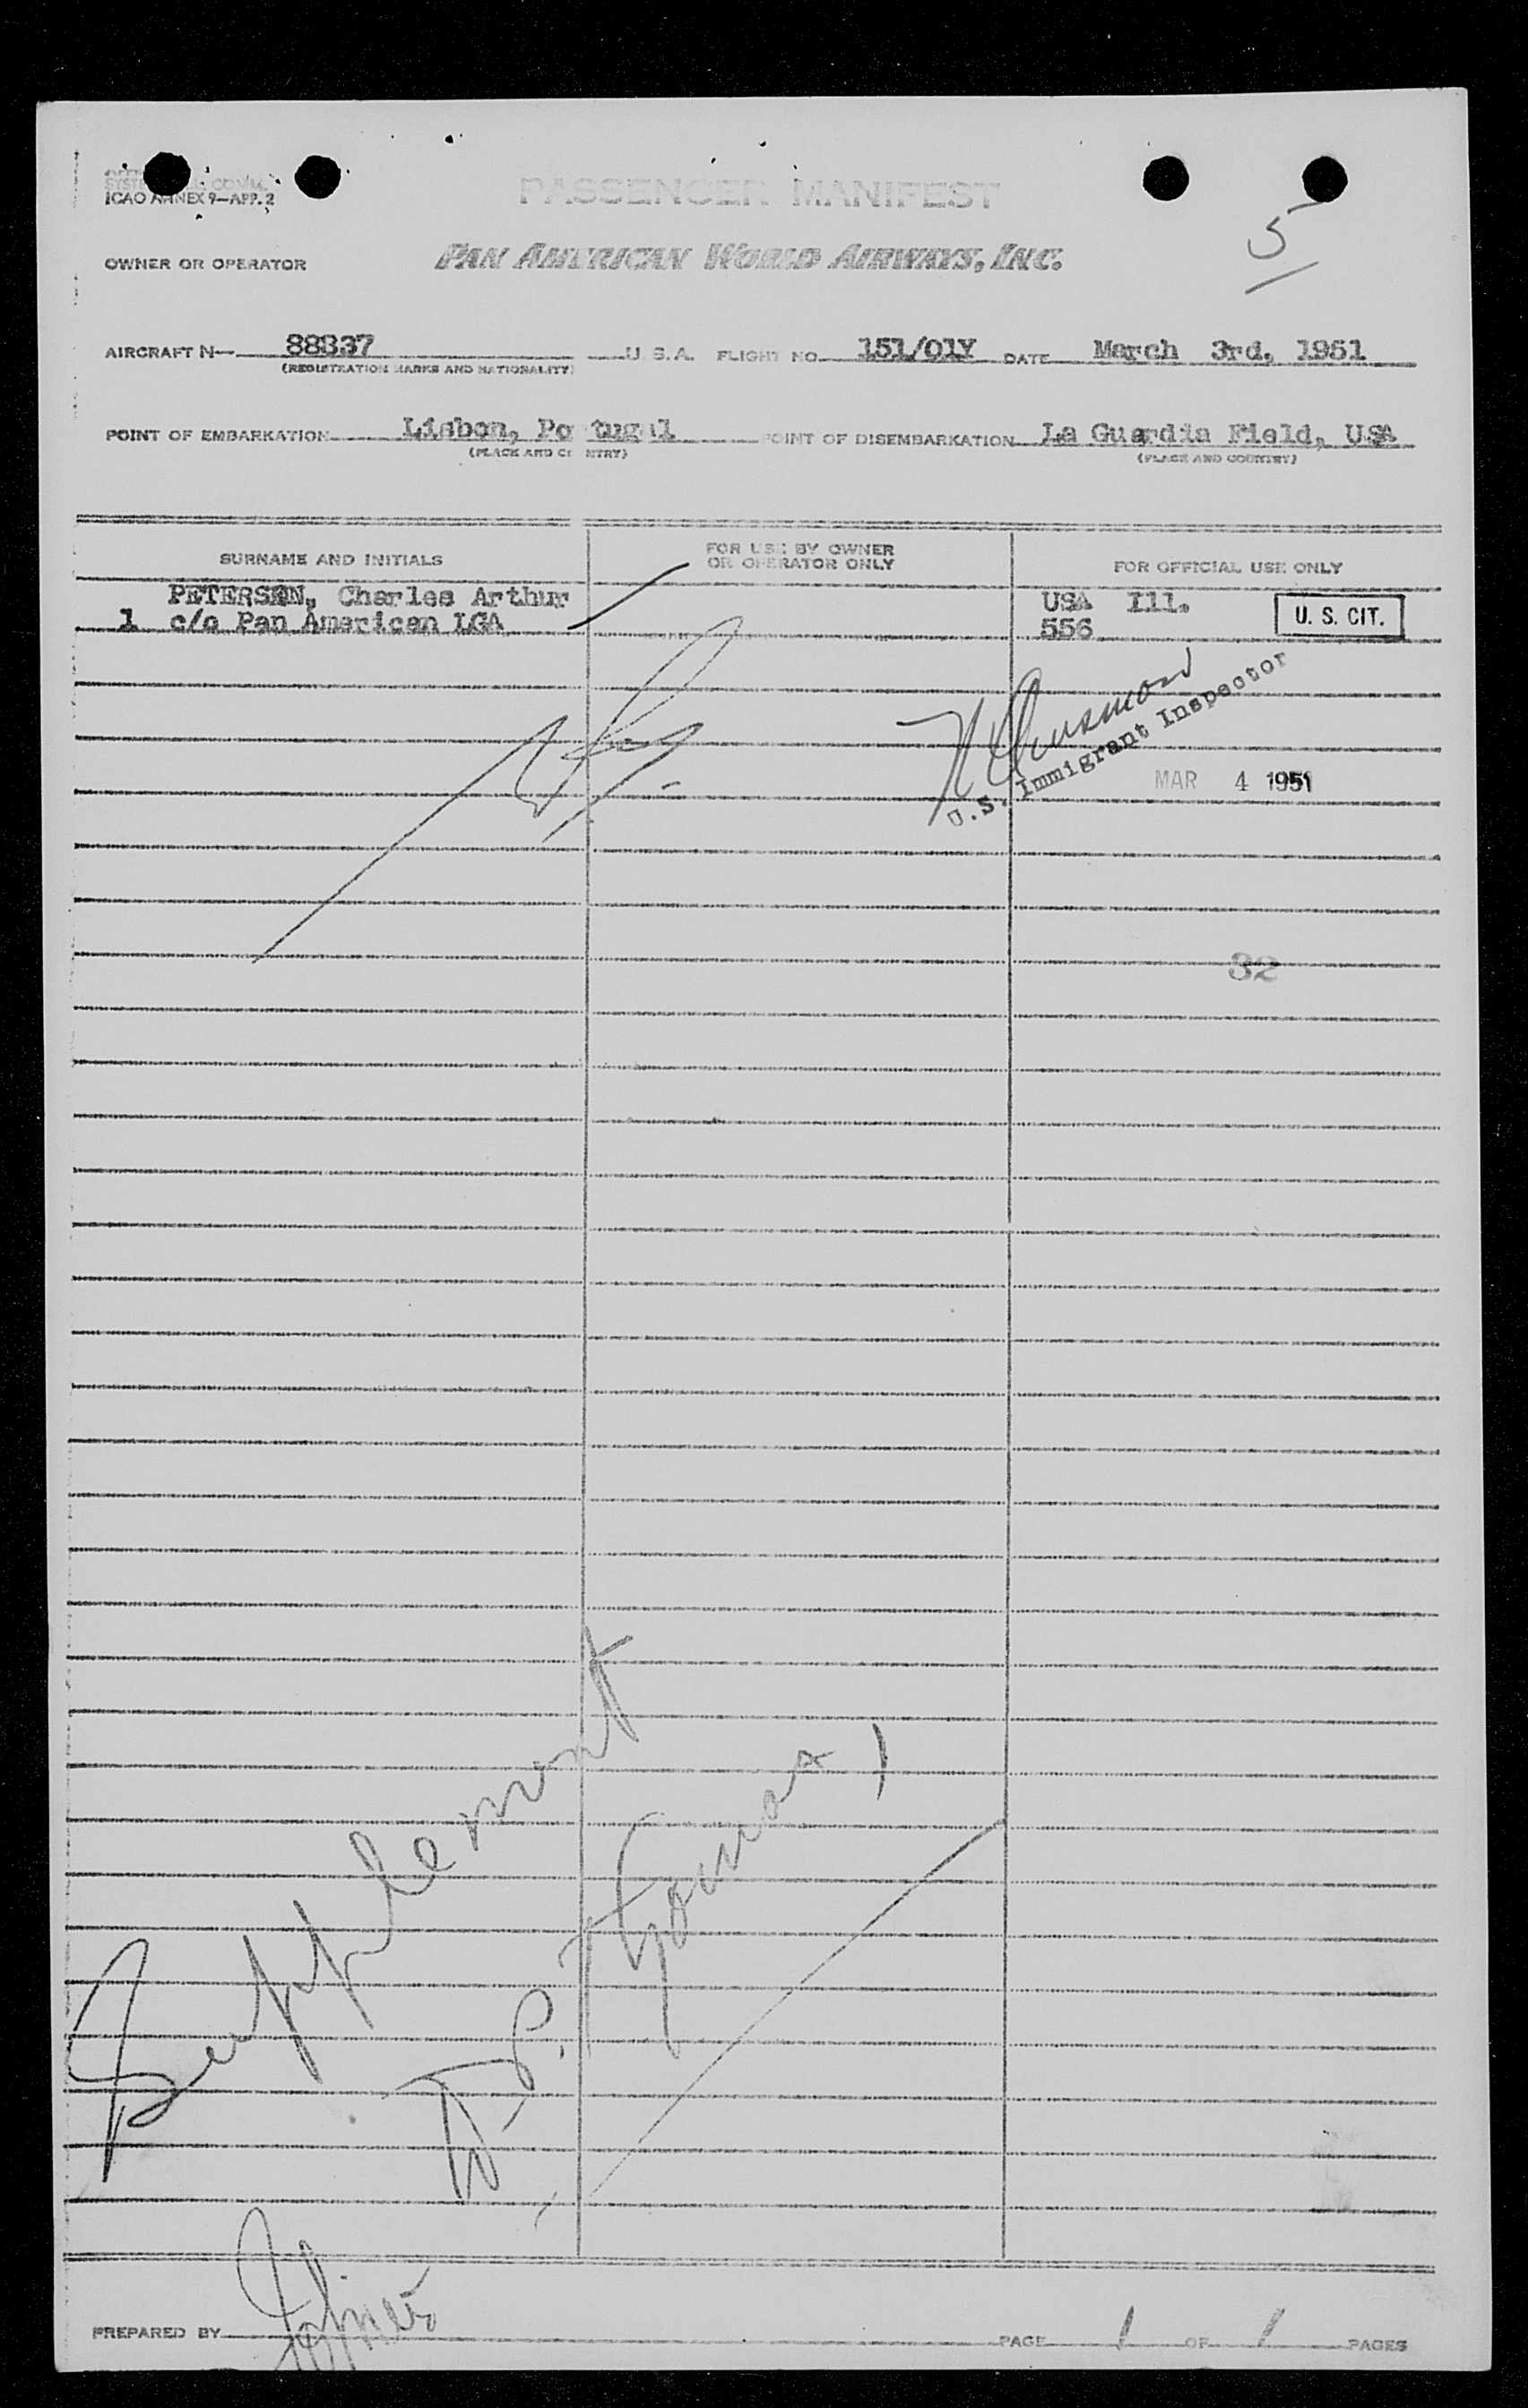 ICAO ANNEX 9—APP. 2
PASSENGER MANIFEST
5
OWNER OR OPERATOR PAN AMERICAN WORLD AIRWAYS, INC.
AIRCRAFT N— 88837 U. S. A. FLIGHT NO. 151/01Y DATE March 3rd, 1951
(REGISTRATION MARKS AND NATIONALITY)
POINT OF EMBARKATION Lisbon, Portugal POINT OF DISEMBARKATION La Guardia Field, USA
(PLACE AND COUNTRY) (PLACE AND COUNTRY)
SURNAME AND INITIALS FOR USE BY OWNER OR OPERATOR ONLY FOR OFFICIAL USE ONLY
PETERSEN, Charles Arthur USA Ill.
1 c/o Pan American LGA 556 U. S. CIT.
U.S. Immigrant Inspector
MAR 4 1951
32
Supplement
PREPARED BY PAGE 1 OF 1 PAGES